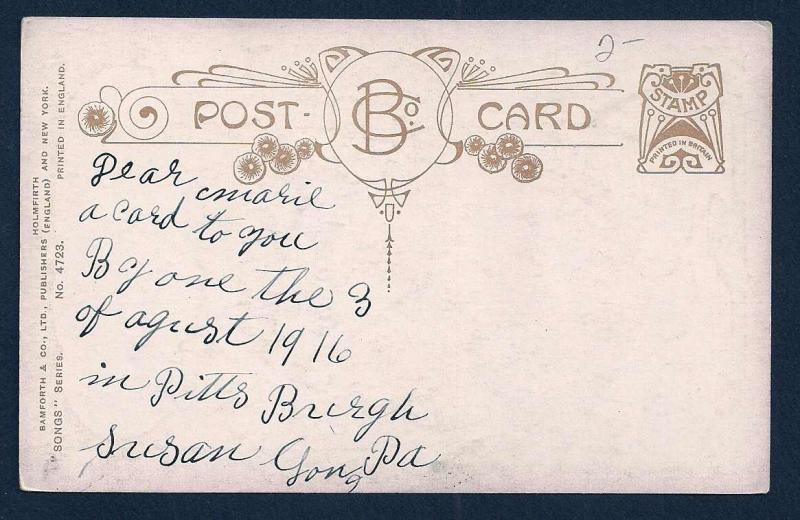 2-
POST-
BCo.
CARD
STAMP
PRINTED IN BRITAIN
Dear marie
a card to you
By one the 3
of agust 1916
in Pitts Burgh
Susan Pa
BAMFORTH & CO., LTD., PUBLISHERS HOLMFIRTH (ENGLAND) AND NEW YORK.
"SONGS" SERIES. No. 4723. PRINTED IN ENGLAND.